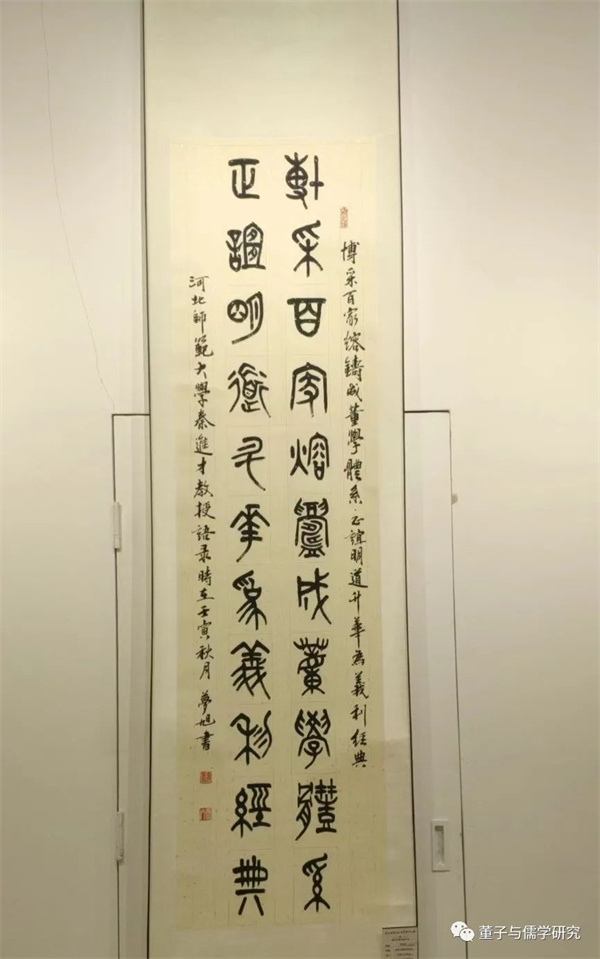 博采百家熔鑄成董學體系·正誼明道升華為義利經典
博采百家熔鑄成董學體系
正誼明道升華為義利經典
河北師範大學秦進才教授語录時在壬寅秋月 夢旭書
董子与儒学研究